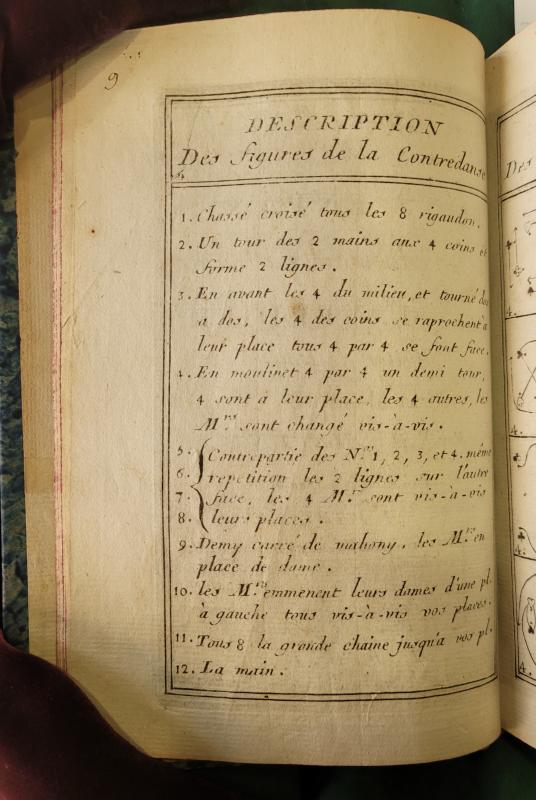 9
DESCRIPTION
Des figures de la Contredanse
1. Chassé croisé tous les 8 rigaudon.
2. Un tour des 2 mains aux 4 coins et
forme 2 lignes.
3. En avant les 4 du milieu, et tourné dos
a dos, les 4 des coins se raprochent à
leur place tous 4 par 4 se font face.
4. En moulinet 4 par 4 un demi tour,
4 sont à leur place, les 4 autres, les
M.rs sont changé vis-à-vis.
5. Contrepartie des N.os 1, 2, 3, et 4. même
6. repetition les 2 lignes sur l'autre
7. face, les 4 M.rs sont vis-à-vis
8. leurs places.
9. Demy carré de mahony, les M.rs en
place de dame.
10. les M.rs emmenent leurs dames d'une pl.
à gauche tous vis-à-vis vos places.
11. Tous 8 la grande chaine jusqu'a vos pl.
12. La main.
Des
4.
4.
4.